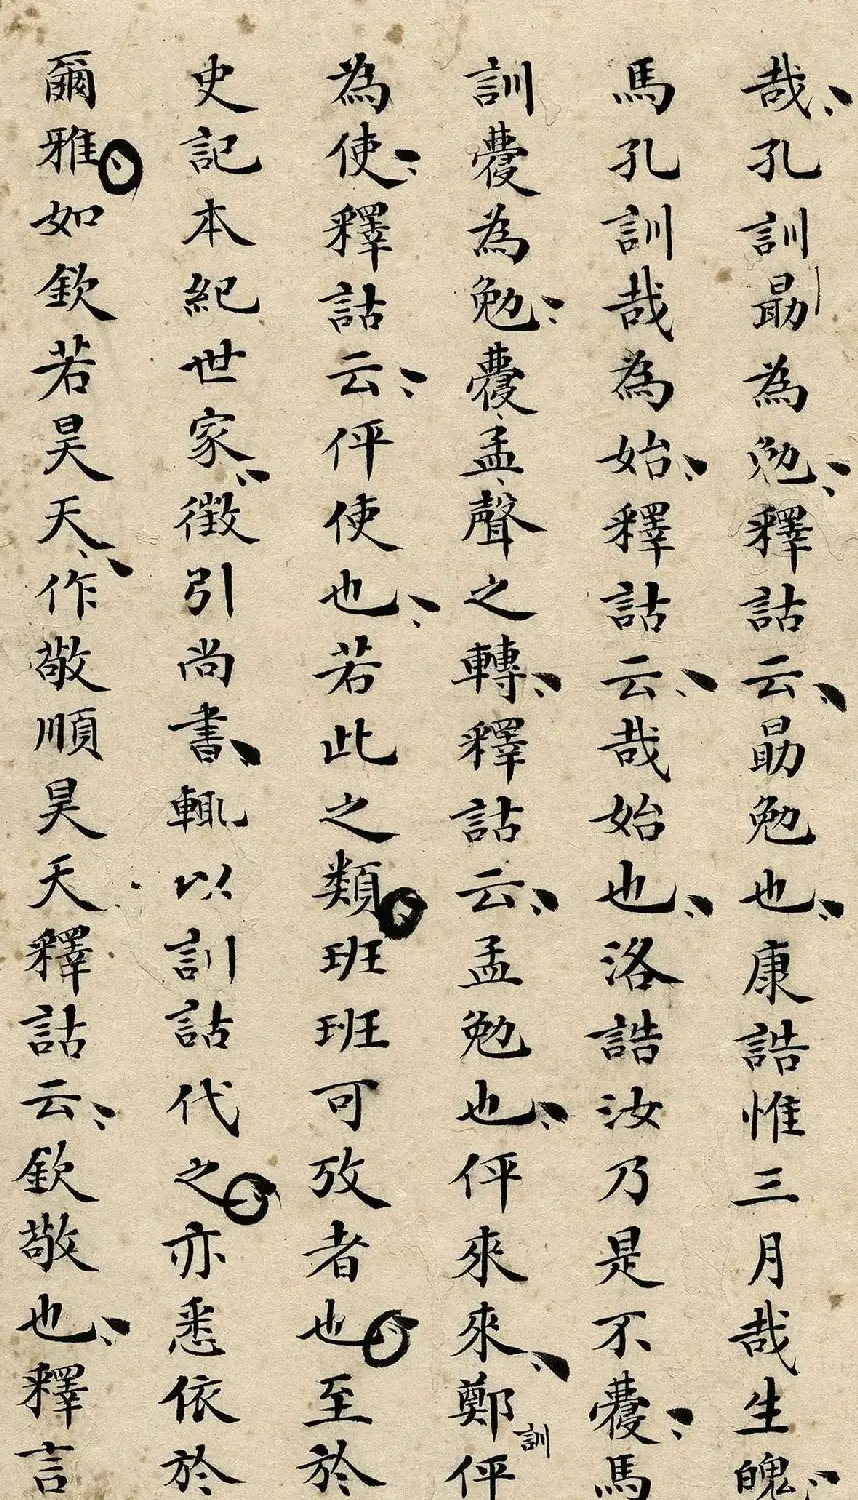 哉孔訓勗為勉釋詁云勗勉也康誥惟三月哉生魄
馬孔訓哉為始釋詁云哉始也洛誥汝乃是不蘉馬
訓蘉為勉蘉孟聲之轉釋詁云孟勉也伻來來鄭訓伻
為使釋詁云伻使也若此之類班班可攷者也至於
史記本紀世家徵引尚書輒以訓詁代之亦悉依於
爾雅如欽若昊天作敬順昊天釋詁云欽敬也釋言